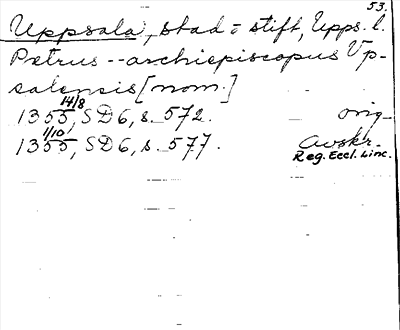 53.
Uppsala, stad o stift, Upps. l.
Petrus -- archiepiscopus Vp-
salensis [nom.]
14/8
1355, SD6, s. 572. orig.
1/10
1355, SD6, s. 577. Avskr.
Reg. Eccl. Linc.